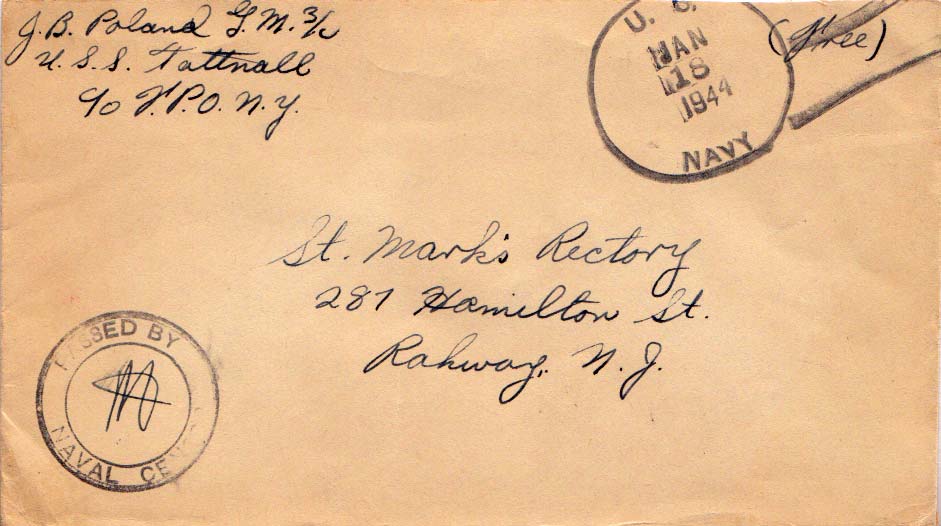 J. B. Poland G. M. 3/c
U. S. S. Tattnall
c/o F. P. O. N. Y.
(Free)
U. S.
JAN
18
1944
NAVY
St. Mark's Rectory
287 Hamilton St.
Rahway, N. J.
PASSED BY
NAVAL CENSOR